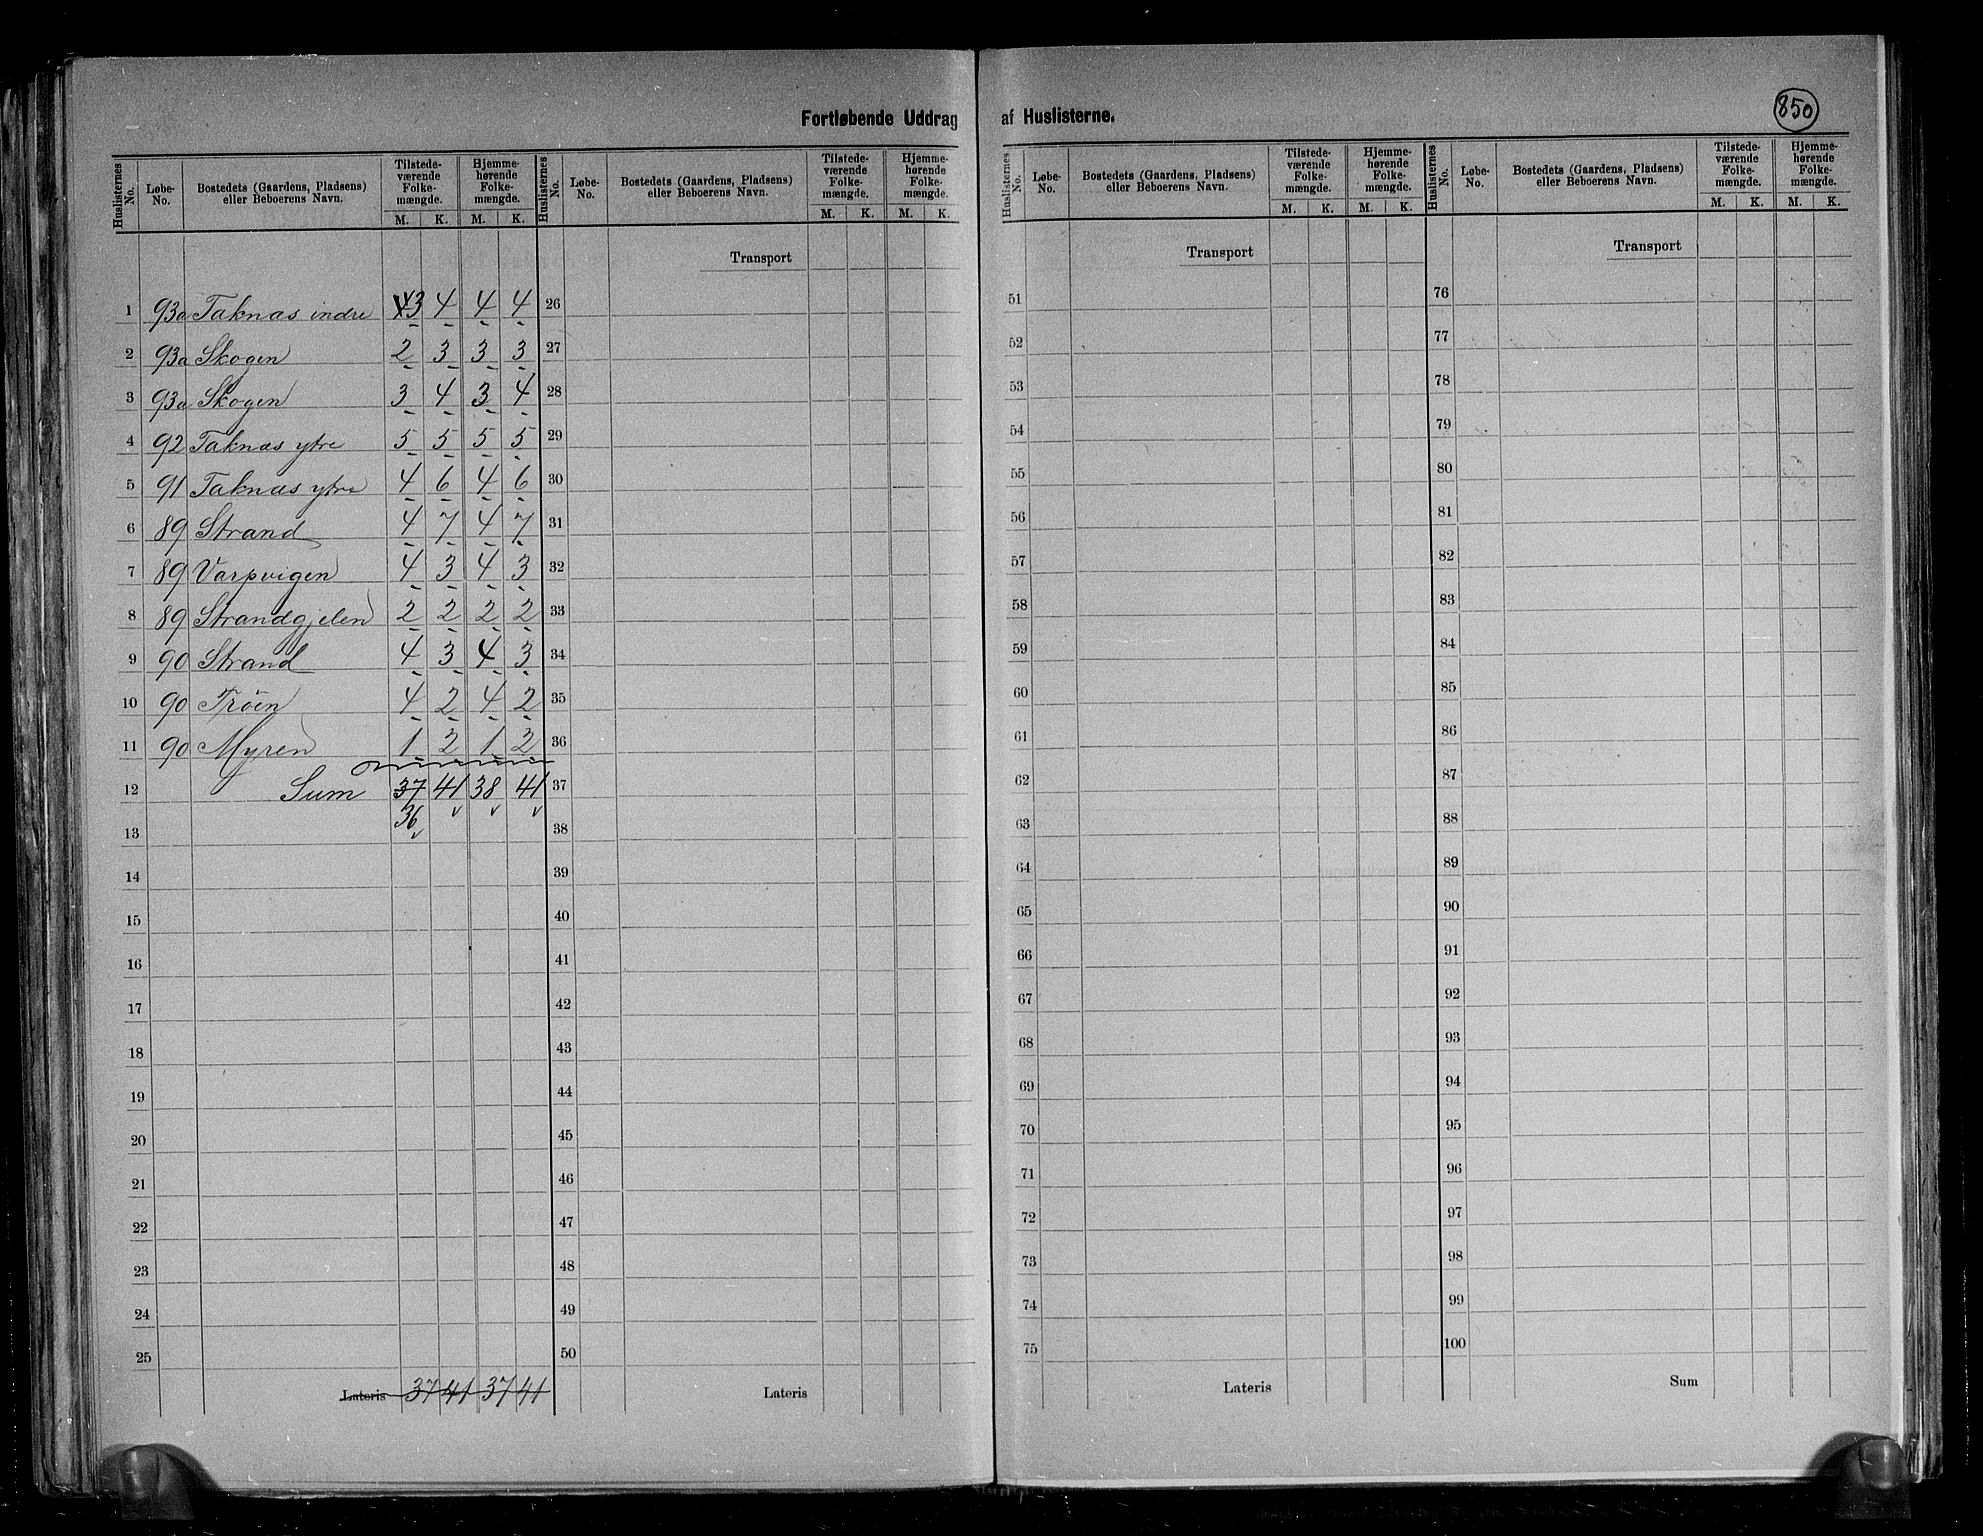 850
Fortløbende Uddrag af Huslisterne.
Huslisternes No. | Løbe-No. | Bostedets (Gaardens, Pladsens) eller Beboerens Navn. | Tilstedeværende Folkemængde. M. K. | Hjemmehørende Folkemængde. M. K.
Huslisternes No. | Løbe-No. | Bostedets (Gaardens, Pladsens) eller Beboerens Navn. | Tilstedeværende Folkemængde. M. K. | Hjemmehørende Folkemængde. M. K.
Huslisternes No. | Løbe-No. | Bostedets (Gaardens, Pladsens) eller Beboerens Navn. | Tilstedeværende Folkemængde. M. K. | Hjemmehørende Folkemængde. M. K.
Huslisternes No. | Løbe-No. | Bostedets (Gaardens, Pladsens) eller Beboerens Navn. | Tilstedeværende Folkemængde. M. K. | Hjemmehørende Folkemængde. M. K.
Transport Transport Transport
1 93a Taknæs indre 4 3 4 4 4 26 51 76
2 93a Skogen 2 3 3 3 27 52 77
3 93a Skogen 3 4 3 4 28 53 78
4 92 Taknæs ytre 5 5 5 5 29 54 79
5 91 Taknæs ytre 4 6 4 6 30 55 80
6 89 Strand 4 7 4 7 31 56 81
7 89 Varpvigen 4 3 4 3 32 57 82
8 89 Strandgjelen 2 2 2 2 33 58 83
9 90 Strand 4 3 4 3 34 59 84
10 90 Tröen 4 2 4 2 35 60 85
11 90 Myren 1 2 1 2 36 61 86
12 Sum 37 41 38 41 37 62 87
36
13 38 63 88
14 39 64 89
15 40 65 90
16 41 66 91
17 42 67 92
18 43 68 93
19 44 69 94
20 45 70 95
21 46 71 96
22 47 72 97
23 48 73 98
24 49 74 99
25 50 75 100
Lateris 37 41 37 41 Lateris Lateris Sum